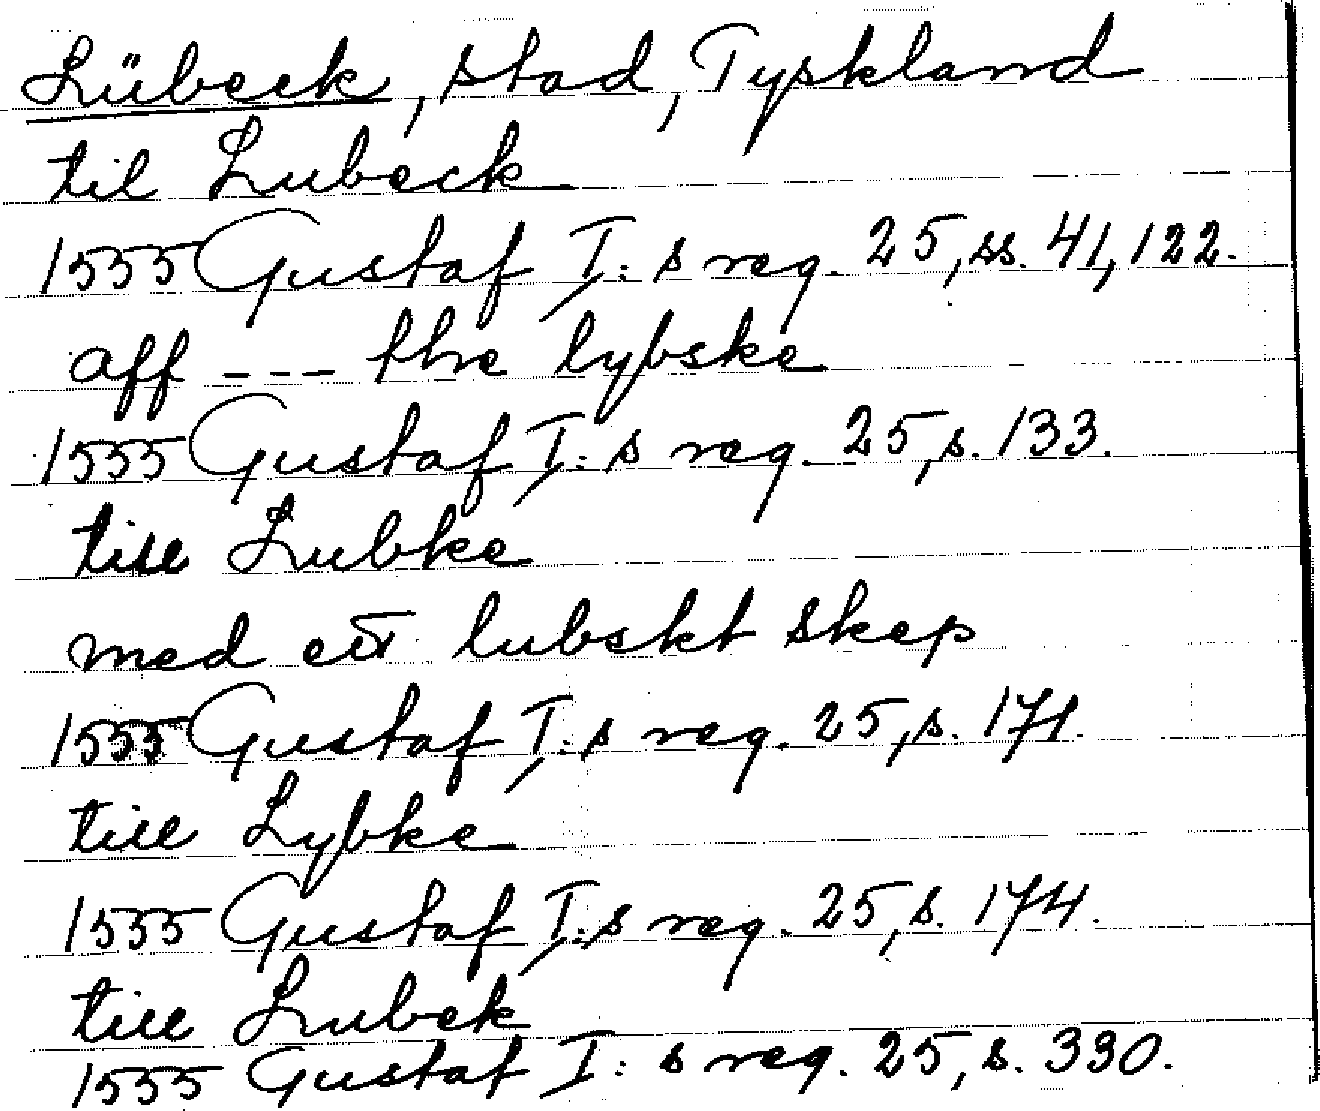 Lübeck, stad, Tyskland
til Lubeck
1555 Gustaf I:s reg. 25, ss. 41, 122.
aff --- the lybske
1555 Gustaf I:s reg. 25, s. 133.
till Lubke
med ett lubskt skep
1555 Gustaf I:s reg. 25, s. 171.
till Lybke
1555 Gustaf I:s reg. 25, s. 174.
till Lubek
1555 Gustaf I:s reg. 25, s. 330.